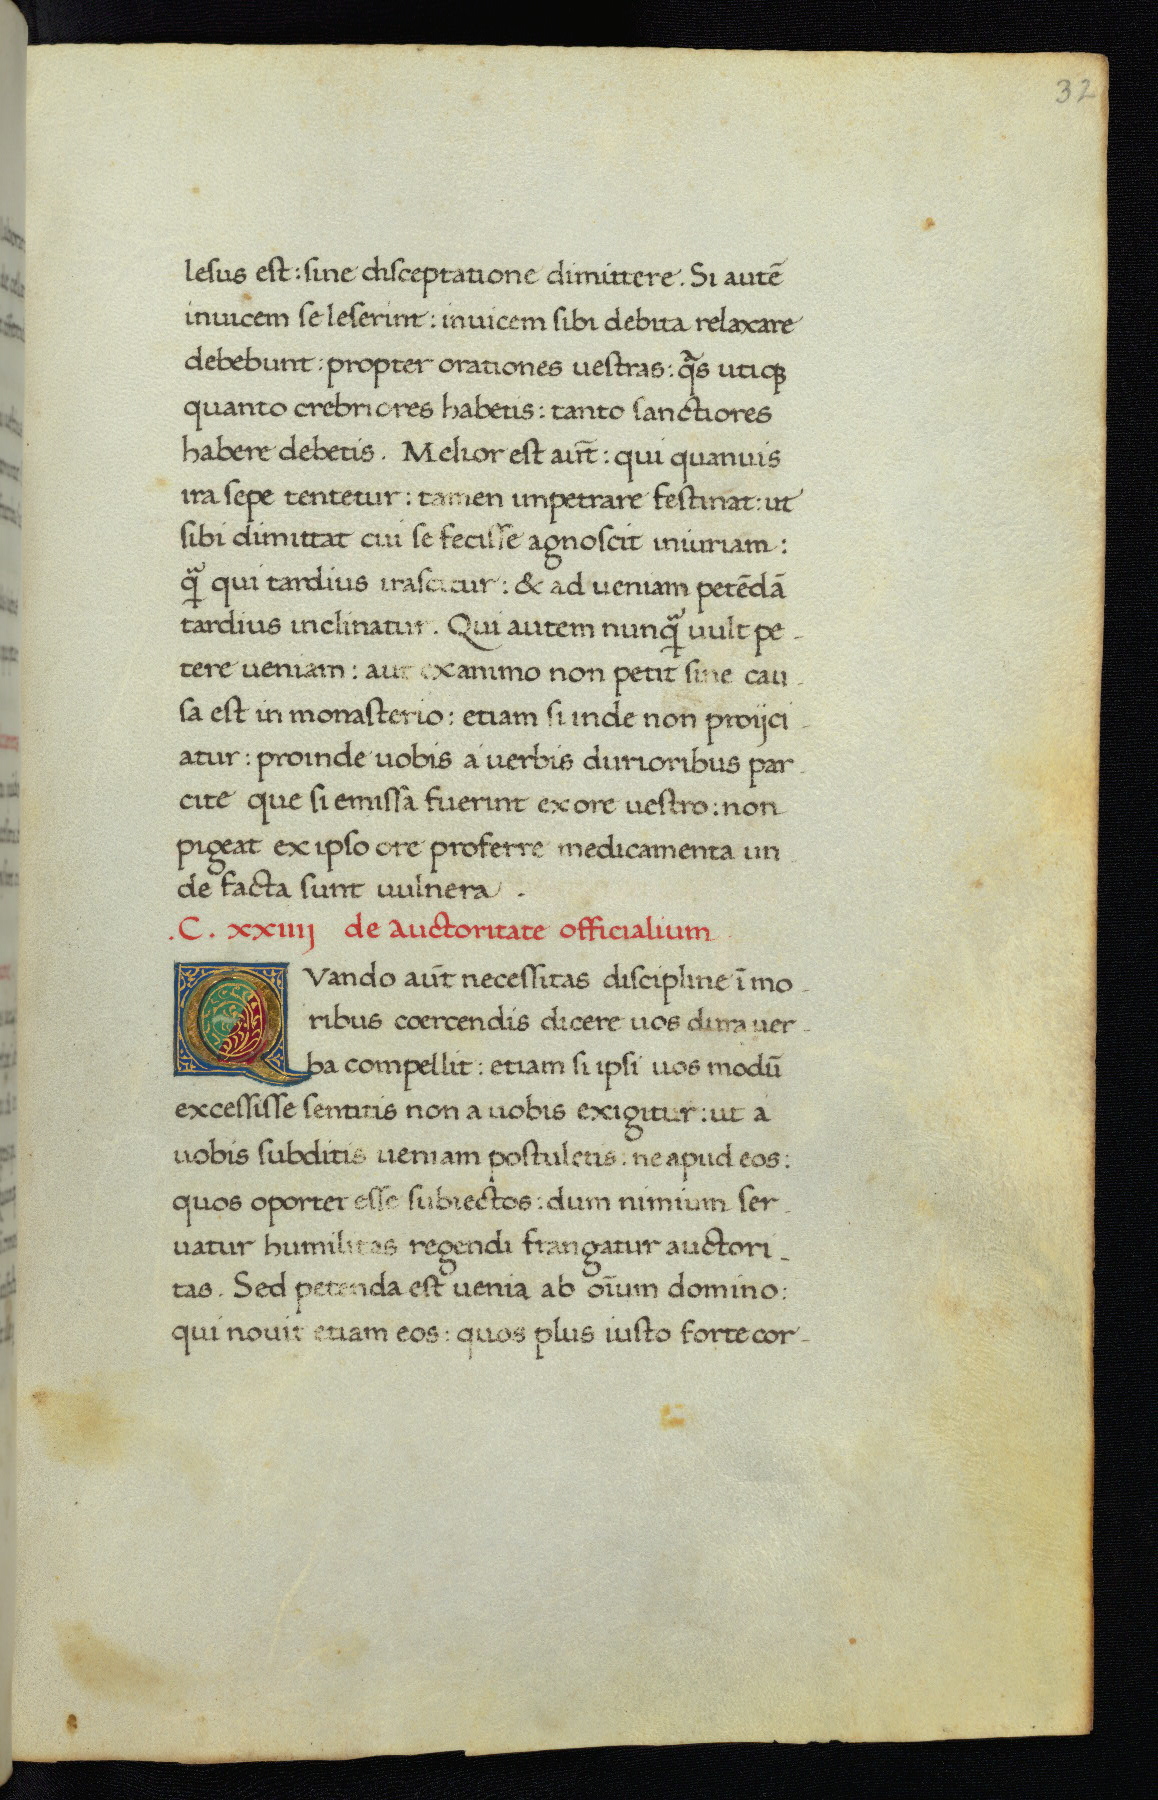 32
lesus est : sine disceptatione dimittere . Si autē
inuicem se leserint : inuicem sibi debita relaxare
debebunt : propter orationes uestras : qͣs utiqꝫ
quanto crebriores habetis : tanto sanctiores
habere debetis . Melior est aut̄ : qui quanuis
ira sepe tentetur : tamen impetrare festinat : ut
sibi dimittat cui se fecisse agnoscit iniuriam :
q̣ͣꝫ qui tardius irascitur : & ad ueniam petēdā
tardius inclinatur . Qui autem nunq̣ͣꝫ uult pe -
tere ueniam : aut ex animo non petit sine cau -
sa est in monasterio : etiam si inde non proijci -
atur : proinde uobis a uerbis durioribus par -
cite que si emissa fuerint ex ore uestro : non
pigeat ex ipso ore proferre medicamenta un
de facta sunt uulnera .
. C . xxiiij de Auctoritate officialium
QVando aut̄ necessitas discipline ī mo -
ribus coercendis dicere uos dura uer -
ba compellit : etiam si ipsi uos modū
excessisse sentitis non a uobis exigitur : ut a
uobis subditis ueniam postuletis . ne apud eos :
quos oportet esse subiectos : dum nimium ser -
uatur humilitas regendi frangatur auctori -
tas . Sed petenda est uenia ab oīum domino :
qui nouit etiam eos : quos plus iusto forte cor -